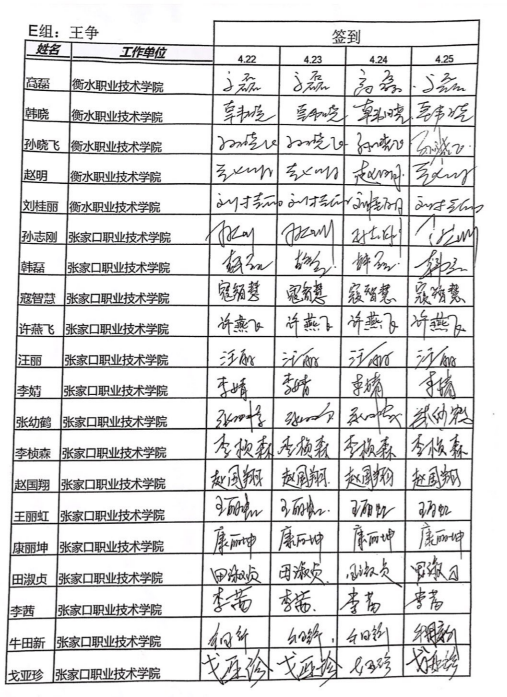 E组：王争 签到
姓名 工作单位 4.22 4.23 4.24 4.25
高磊 衡水职业技术学院 高磊 高磊 高磊 高磊
韩晓 衡水职业技术学院 韩晓 韩晓 韩晓 韩晓
孙晓飞 衡水职业技术学院 孙晓飞 孙晓飞 孙晓飞 孙晓飞
赵明 衡水职业技术学院 赵明 赵明 赵明 赵明
刘桂丽 衡水职业技术学院 刘桂丽 刘桂丽 刘桂丽 刘桂丽
孙志刚 张家口职业技术学院
韩磊 张家口职业技术学院 韩磊 韩磊 韩磊 韩磊
寇智慧 张家口职业技术学院 寇智慧 寇智慧 寇智慧 寇智慧
许燕飞 张家口职业技术学院 许燕飞 许燕飞 许燕飞 许燕飞
汪丽 张家口职业技术学院 汪丽 汪丽 汪丽 汪丽
李婧 张家口职业技术学院 李婧 李婧 李婧 李婧
张幼鹤 张家口职业技术学院 张幼鹤
李桢森 张家口职业技术学院 李桢森 李桢森 李桢森 李桢森
赵国翔 张家口职业技术学院 赵国翔 赵国翔 赵国翔 赵国翔
王丽虹 张家口职业技术学院 王丽虹 王丽虹 王丽虹 王丽虹
康丽坤 张家口职业技术学院 康丽坤 康丽坤 康丽坤 康丽坤
田淑贞 张家口职业技术学院 田淑贞 田淑贞 田淑贞 田淑贞
李茜 张家口职业技术学院 李茜 李茜 李茜 李茜
牛田新 张家口职业技术学院 牛田新 牛田新 牛田新 牛田新
戈亚珍 张家口职业技术学院 戈亚珍 戈亚珍 戈亚珍 戈亚珍